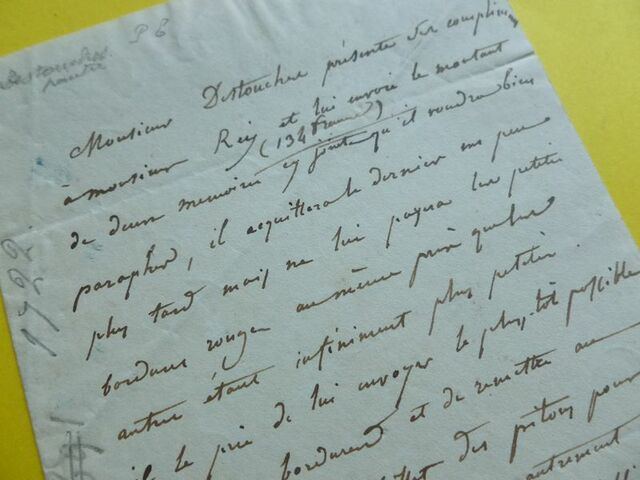 P 6
Destouches
peintre
Monsieur Destouches présente ses complimens
à monsieur Rey et lui envoie le montant
(134 francs)
de deux memoires cy joints qu'il voudra bien
parapher, il acquittera le dernier un peu
plus tard mais ne lui payera les petites
bordures rouges au même prix que les
autres étant infiniment plus petites.
il le prie de lui envoyer le plustôt possible
bordures et de remettre au
des pitons pour
autrement
1922.